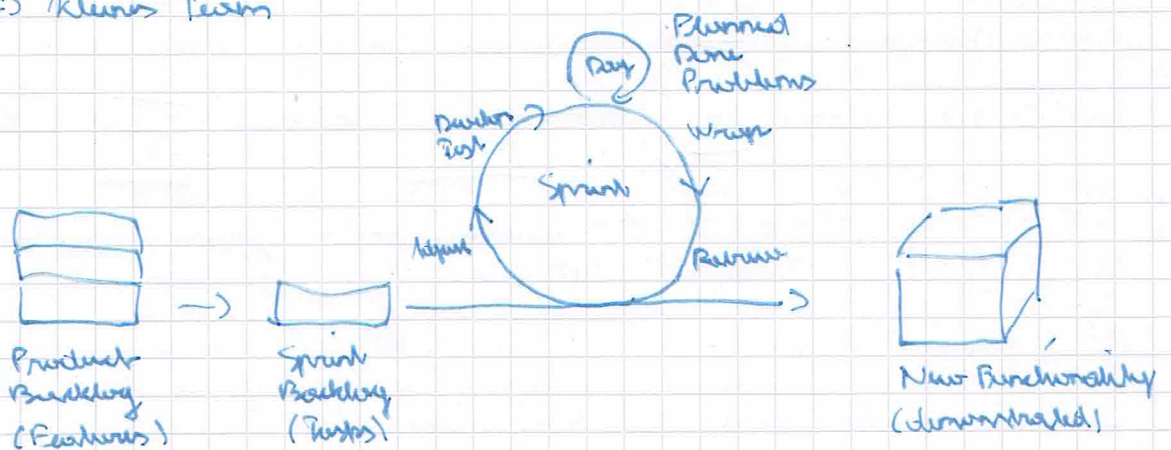 => Kleines Team
Day
Planned
Done
Problems
Develop
Test
Wrap
Sprint
Adjust
Review
Product
Backlog
(Features)
Sprint
Backlog
(Tasks)
New Functionality
(demonstrated)